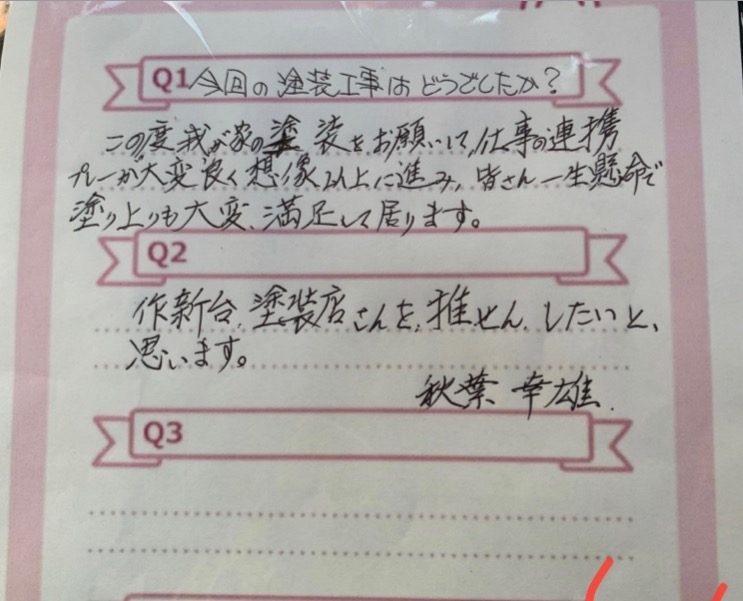 Q1 今回の塗装工事はどうでしたか?
この度我が家の塗装をお願いして、仕事の連携
プレーが大変良く想像以上に進み、皆さん一生懸命で
塗り上りも大変、満足して居ります。
Q2
作新台、塗装店さんを、推せん、したいと、
思います。
秋葉 幸雄.
Q3